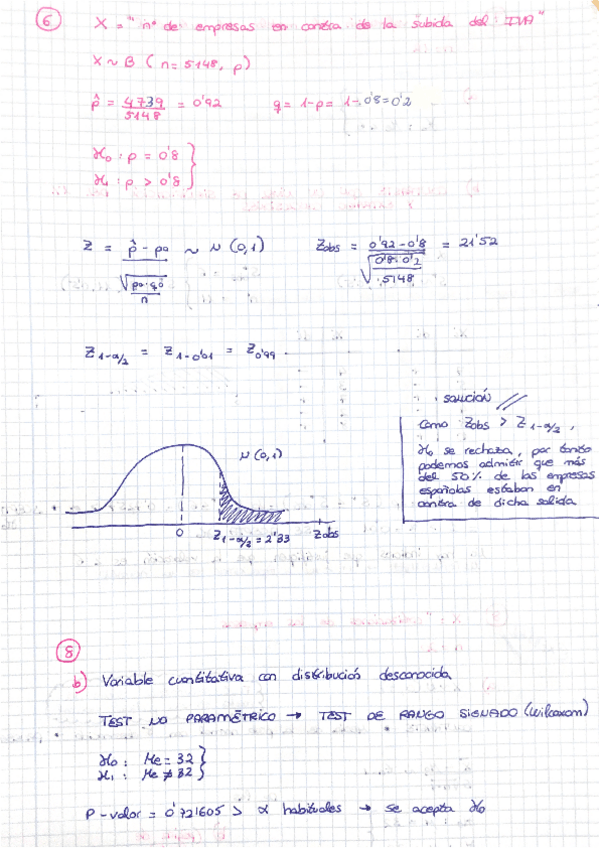 6 X = "nº de empresas en contra de la subida del IVA"
X ~ B (n = 5148, p)
p̂ = 4739/5148 = 0'92 q = 1-p = 1-0'8 = 0'2
H₀ : p = 0'8
H₁ : p > 0'8
Z = (p̂ - p₀)/√(p₀·q₀/n) ~ N (0,1) Zobs = (0'92-0'8)/√(0'8·0'2/5148) = 21'52
Z1-α/2 = Z1-0'01 = Z0'99
SOLUCIÓN //
Como Zobs > Z1-α/2,
H₀ se rechaza, por tanto
podemos admitir que más
del 50% de las empresas
españolas estaban en
contra de dicha salida
N (0,1)
0 Z1-α/2 = 2'33 Zobs
8
b) Variable cuantitativa con distribució desconocida
TEST NO PARAMÉTRICO → TEST DE RANGO SIGNADO (Wilcoxom)
H₀ : Me = 32
H₁ : Me ≠ 32
P-valor = 0'721605 > α habituales → se acepta H₀